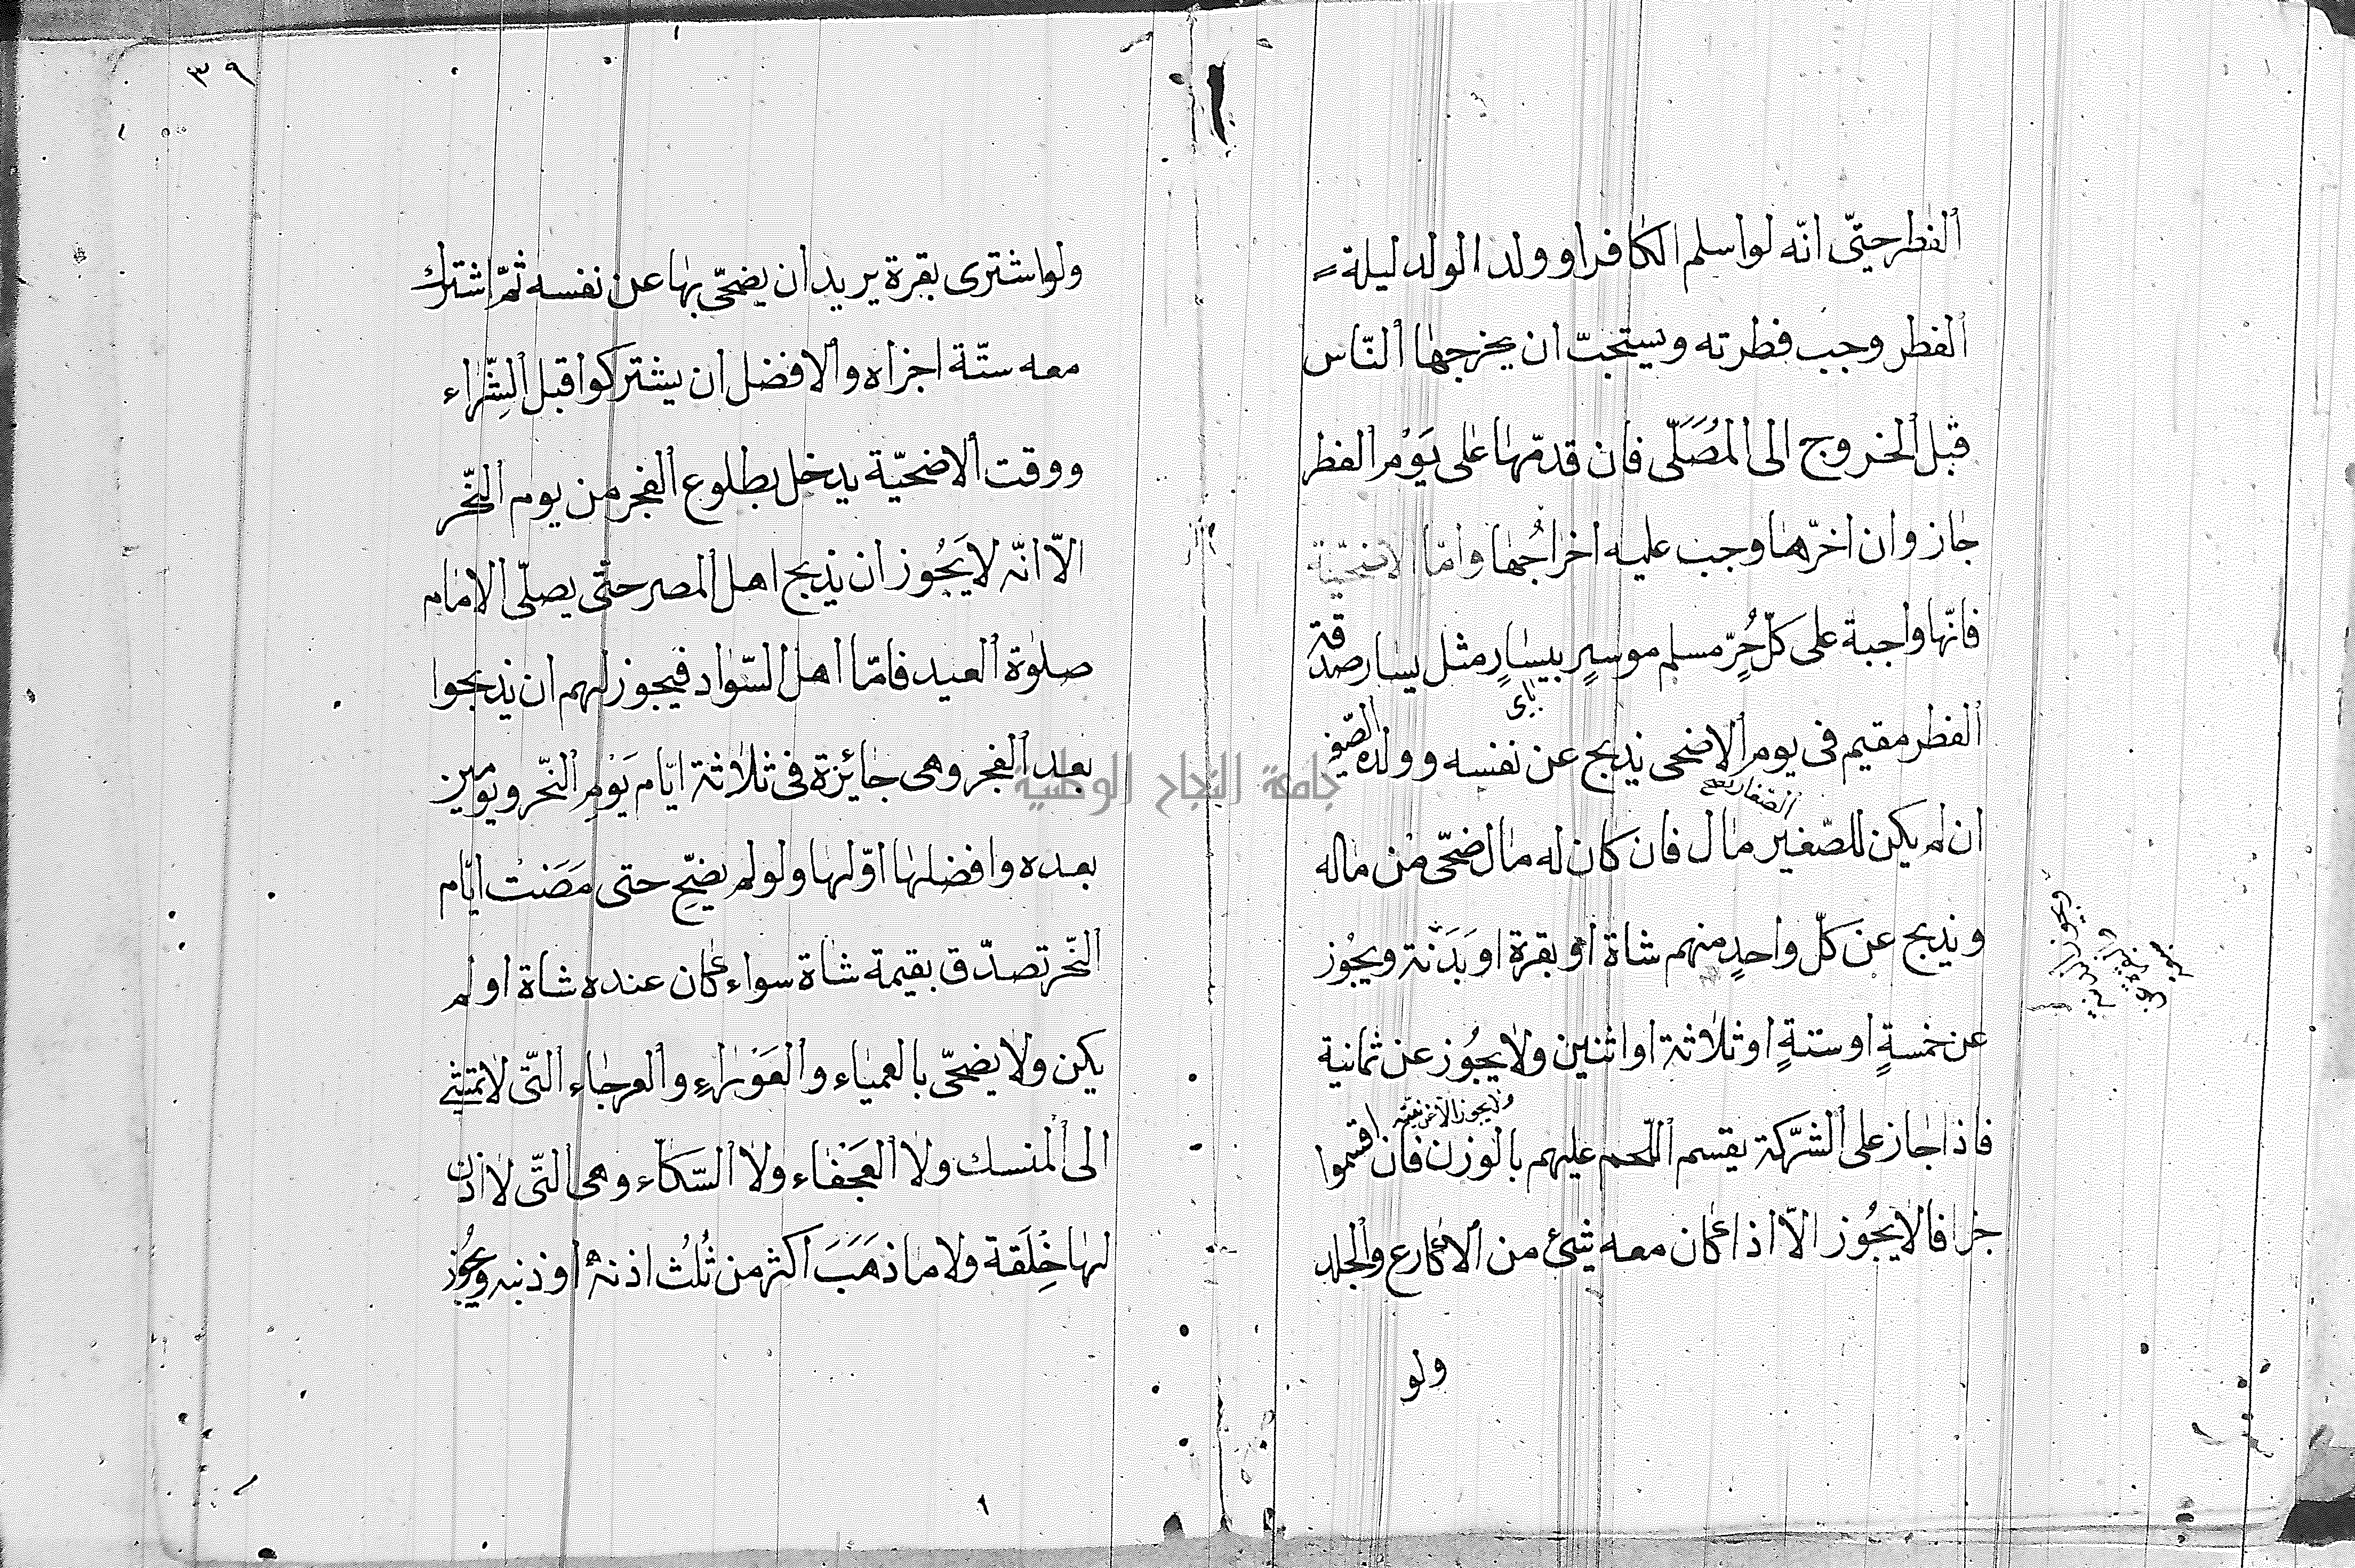 الفطر حتّى انّه لو اسلم الكافر او ولد الولد ليلة
الفطر وجب فطرته ويستحبّ ان يخرجها الناس
قبل الخروج الى المُصَلّى فان قدمّها على يَوْم الفطر
جاز وان اخرّها وجب عليه اخراجُها وامّا الاضحيّة
فانّها واجبة على كلّ حُرٍّ مسلم موسيرٍ بيسَارٍ مثل يسار صدقة
الفطر مقيم فى يوم الاضحى يذبح عن نفسه وولده الصّغير
ان لم يكن للصّغير مال فان كان له مال ضحّى من ماله
ويذبح عن كلّ واحدٍ منهم شاة او بقرة او بَدَنة ويجُوز
عن خمسةٍ او ستةٍ او ثلاثة او اثنين ولايجُوز عن ثمانية
ولايجوز الا عن سبعة
فاذا جاز على الشّركة يقسم اللّحم عليهم بالوزن فان اقتسموا
جزافا لايجُوز الاّ اذا كان معه شئ من الاكارع والجلد
ولو
٣٩
ولو اشترى بقرة يريد ان يضحّى بها عن نفسه ثمّ اشترك
معه ستّة اجزاه والافضل ان يشتركوا قبل الشِّراء
ووقت الاضحيّة يدخل بطلوع الفجر من يوم النّحر
الاّ انّه لايَجُوز ان يذبح اهل المصر حتّى يصلّى الامام
صلوة العيد فامّا اهل السّواد فيجوز لهم ان يذبحوا
بعد الفجر وهى جائزة فى ثلاثة ايّام يَوْمِ النّحر ويومين
بعده وافضلها اوّلها ولو لم يضحِّ حتى مَضَتْ ايّام
النّحر تصدّق بقيمة شاة سواء كان عنده شاة او لم
يكن ولا يضحّى بالعمياء والعَوْراءِ والعرجاء التّى لاتمشى
الى المنسك ولا العَجْفاء ولا السّكاّء وهى التّى لا اذن
لها خِلْقة ولا ما ذهَبَ اكثر من ثُلث اذنه او ذنبه ويجُوز
جامعة النجاح الوطنية